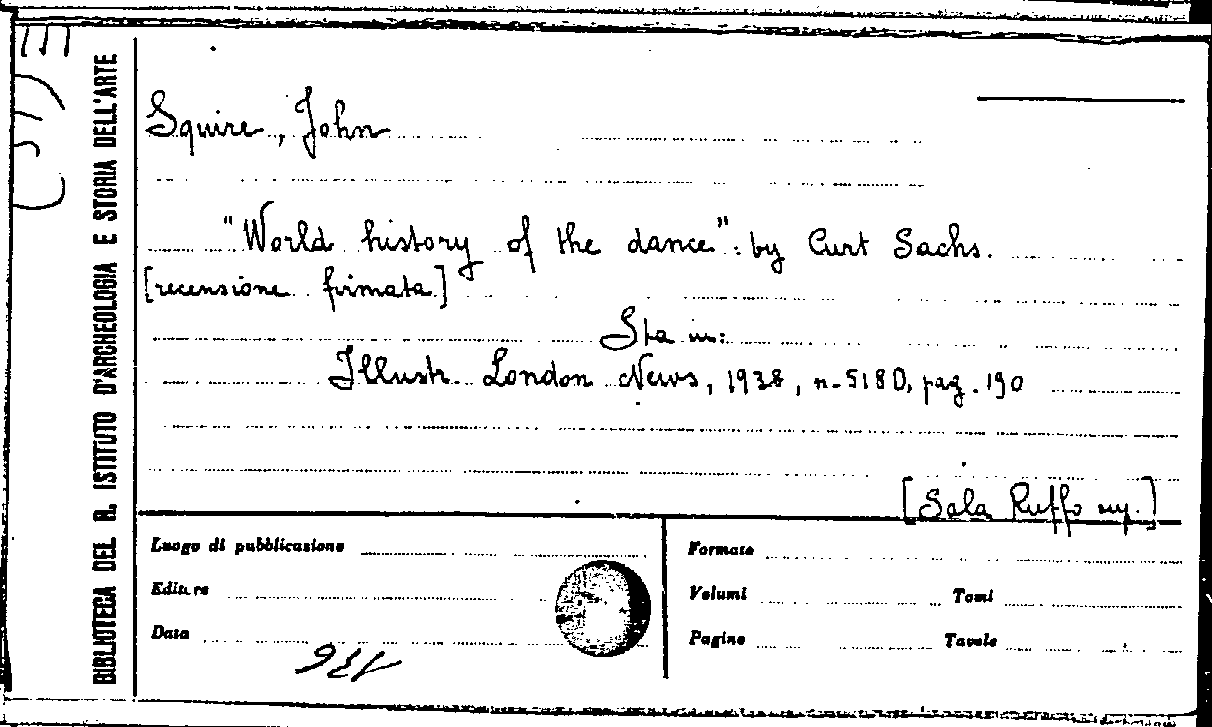 BIBLIOTECA DEL R. ISTITUTO D'ARCHEOLOGIA E STORIA DELL'ARTE
Squire, John
"World history of the dance": by Curt Sachs.
[recensione firmata]
Sta in:
Illustr. London News, 1938, n. 5180, pag. 190
[Sala Ruffo mp.]
Luogo di pubblicazione
Editore
Data
Formato
Volumi Tomi
Pagine Tavole